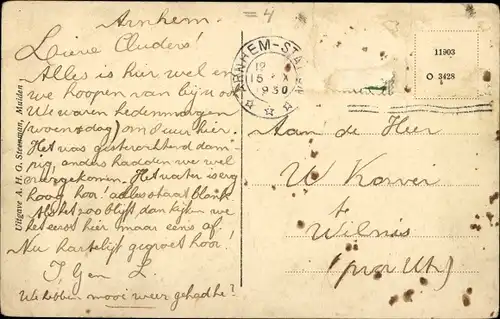 Arnhem.
Lieve Ouders!
Alles is hier wel en
we hoopen van bij u ook
We waren hedenmorgen
(woensdag) om 8 uur hier.
Het was gisterochtend dam-
pig, anders hadden we wel
overgekomen. Het water is erg
hoog hoor! alles staat blank.
Als het zoo blijft dan kijken we
het eerst hier maar eens af.
Nu hartelijk gegroet hoor!
J. G en L.
We hebben mooi weer gehad he?
Uitgave A. H. G. Steenman, Malden
ARNHEM-STATION
12
15 X
1930
11903
O 3428
Aan de Heer
W
te
Wilnis
(prov Utr)